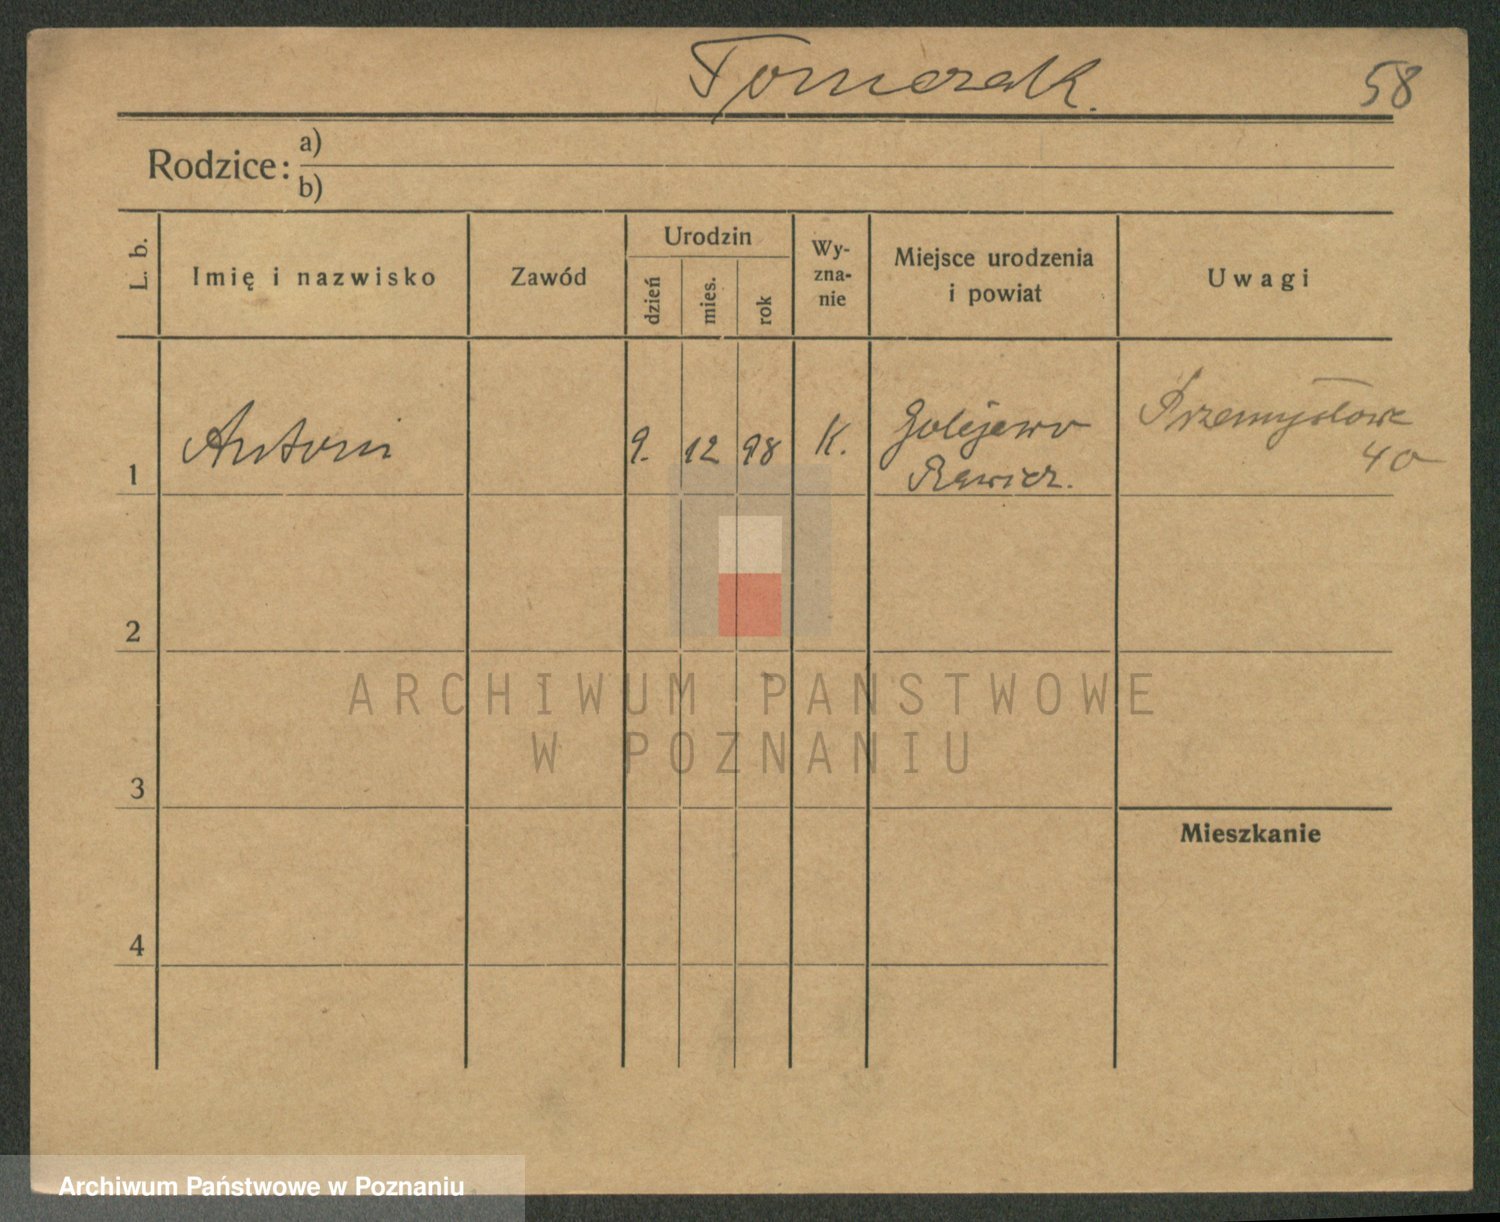 Tomczak. 58
Rodzice: a)
b)
L. b.
Imię i nazwisko
Zawód
Urodzin
dzień
mies.
rok
Wy-
zna-
nie
Miejsce urodzenia
i powiat
Uwagi
1 Antoni 9. 12 98 K. Golejewo
Rawicz.
Przemysłowa
40
2
3
Mieszkanie
4
ARCHIWUM PAŃSTWOWE
W POZNANIU
Archiwum Państwowe w Poznaniu